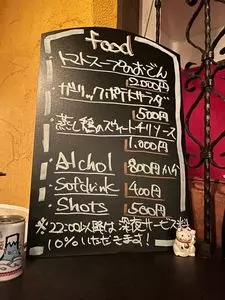 food
トマトスープのおでん
2000円
・ガリックポテトサラダ
1500円
・蒸し鶏のスウィートチリソース
1,000円
・Alchol 800円から
・Sofdrink 400円
・Shots 500円
※22:00以降は深夜サービス料
10%いただきます!